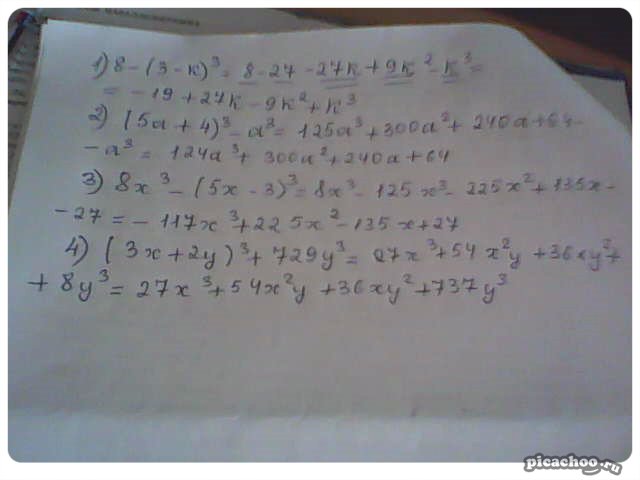 1) 8 - (3 - к)³ = 8 - 27 - 27к + 9к² - к³ =
= - 19 + 27к - 9к² + к³
2) (5а + 4)³ - а³ = 125а³ + 300а² + 240а + 64 -
- а³ = 124а³ + 300а² + 240а + 64
3) 8x³ - (5x - 3)³ = 8x³ - 125x³ - 225x² + 135x -
- 27 = - 117x³ + 225x² - 135x + 27
4) (3x + 2y)³ + 729y³ = 27x³ + 54x²y + 36xy² +
+ 8y³ = 27x³ + 54x²y + 36xy² + 737y³
picachoo.ru